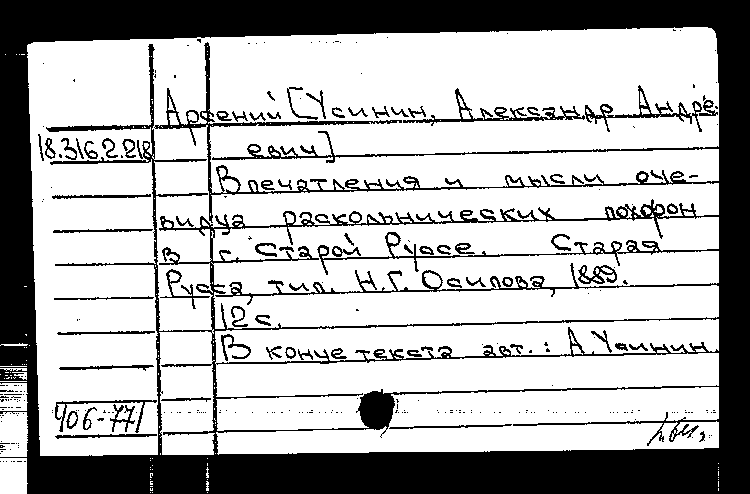 Арсений [Усинин, Александр Андре-
18.316.2.218 евич]
Впечатления и мысли оче-
видца раскольнических похорон
в г. Старой Руссе. Старая
Русса, тип. Н.Г. Осипова, 1889.
12 с.
В конце текста авт.: А. Усинин.
406-77